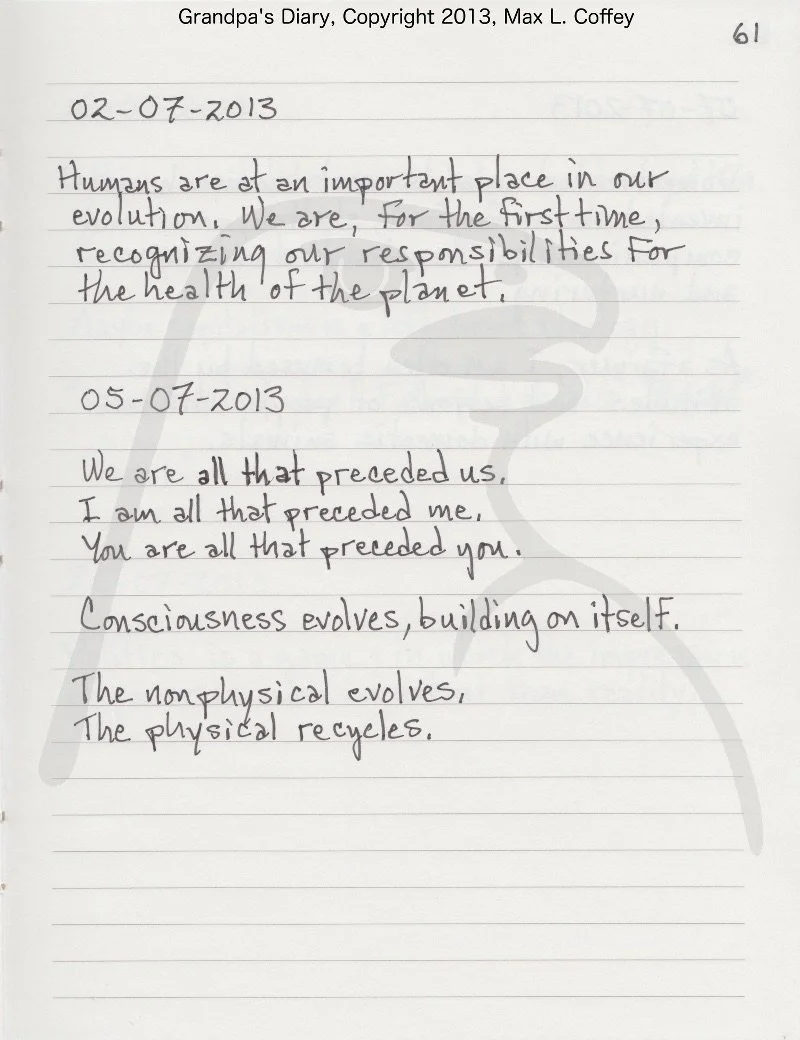 Grandpa's Diary, Copyright 2013, Max L. Coffey
61
02-07-2013
Humans are at an important place in our
evolution. We are, for the first time,
recognizing our responsibilities for
the health of the planet.
05-07-2013
We are all that preceded us.
I am all that preceded me.
You are all that preceded you.
Consciousness evolves, building on itself.
The nonphysical evolves.
The physical recycles.